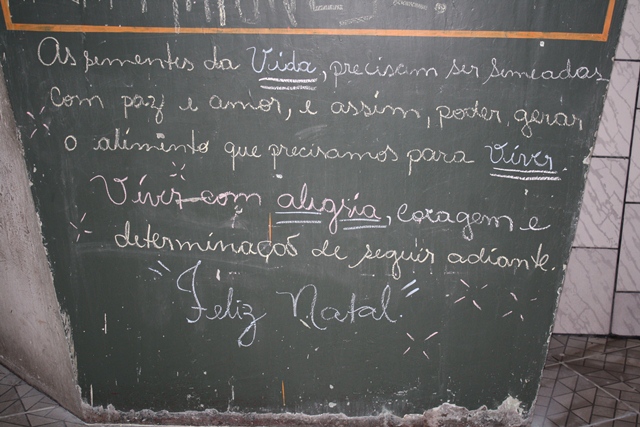 As sementes da Vida, precisam ser semeadas
com paz e amor, e assim, poder, gerar
o alimento que precisamos para Viver.
Viver com alegria, coragem e
determinação de seguir adiante.
"Feliz Natal"